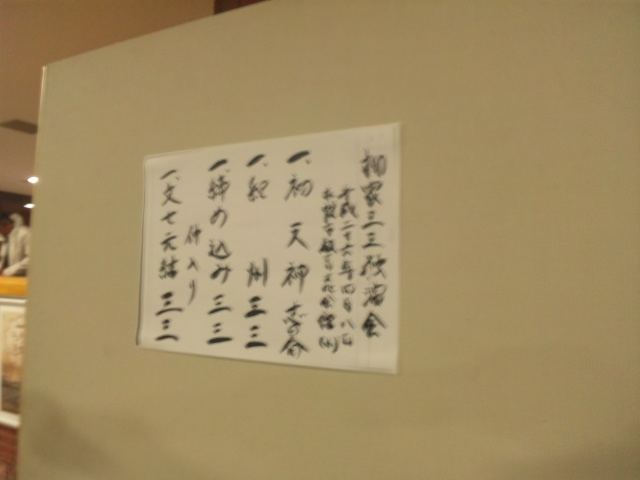 柳家三三独演会
平成二十六年四月八日
一、初天神
一、紀州 三三
一、締め込み 三三
仲入り
一、文七元結 三三